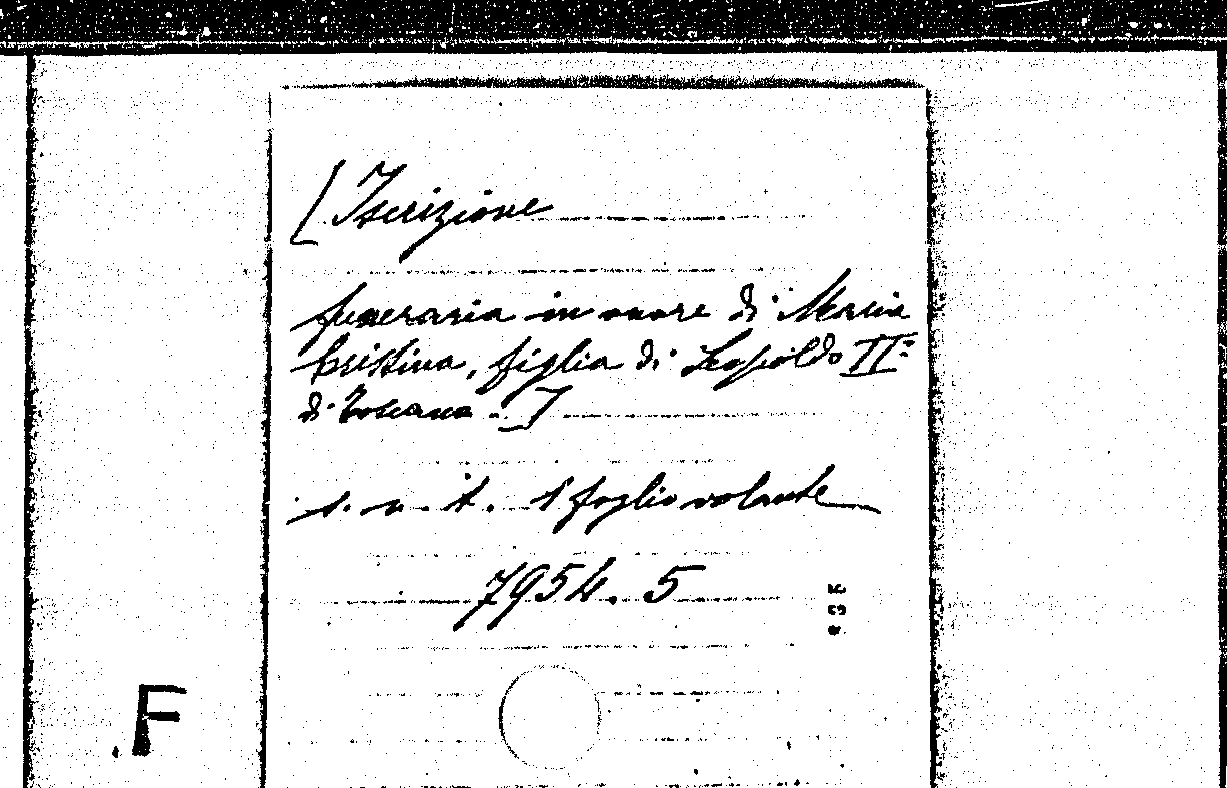 [Iscrizione
funeraria in onore di Maria
Cristina, figlia di Leopoldo II°
di Toscana.]
s. n. t. 1 foglio volante
7954. 5
F